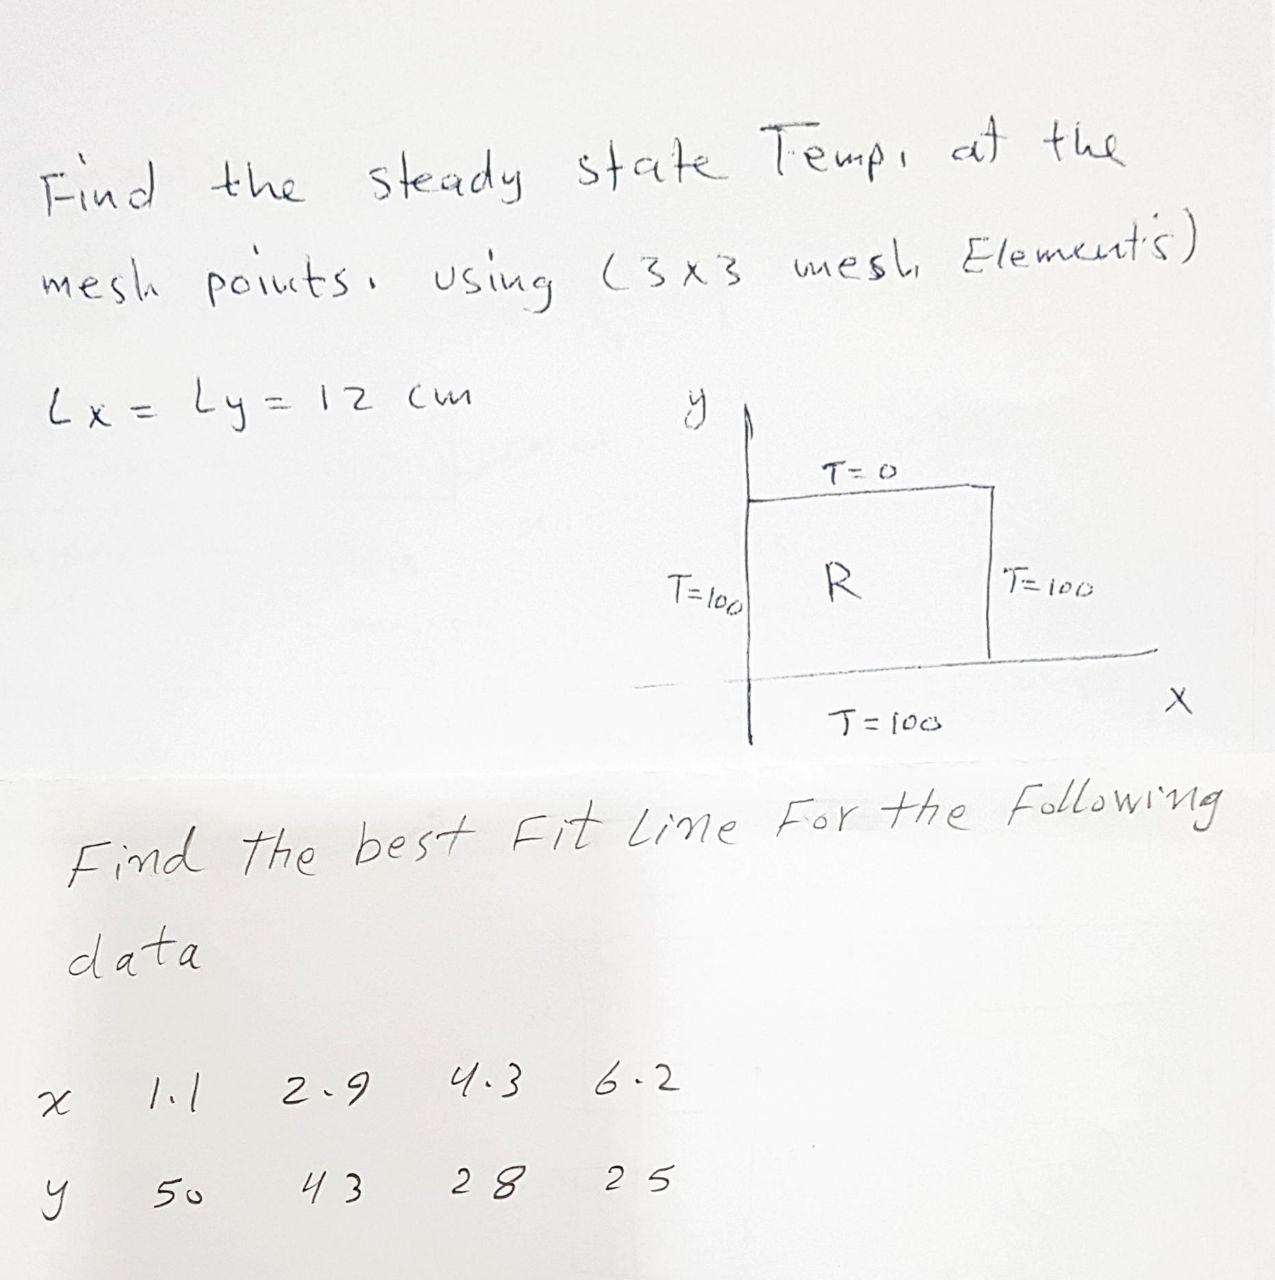 Find the steady state Temp. at the
mesh points. using (3x3 mesh Element's)
Lx = Ly = 12 cm
y
T= 0
T=100
R
T=100
T=100
x
Find the best Fit Line For the Following
data
x 1.1 2.9 4.3 6.2
y 50 43 28 25